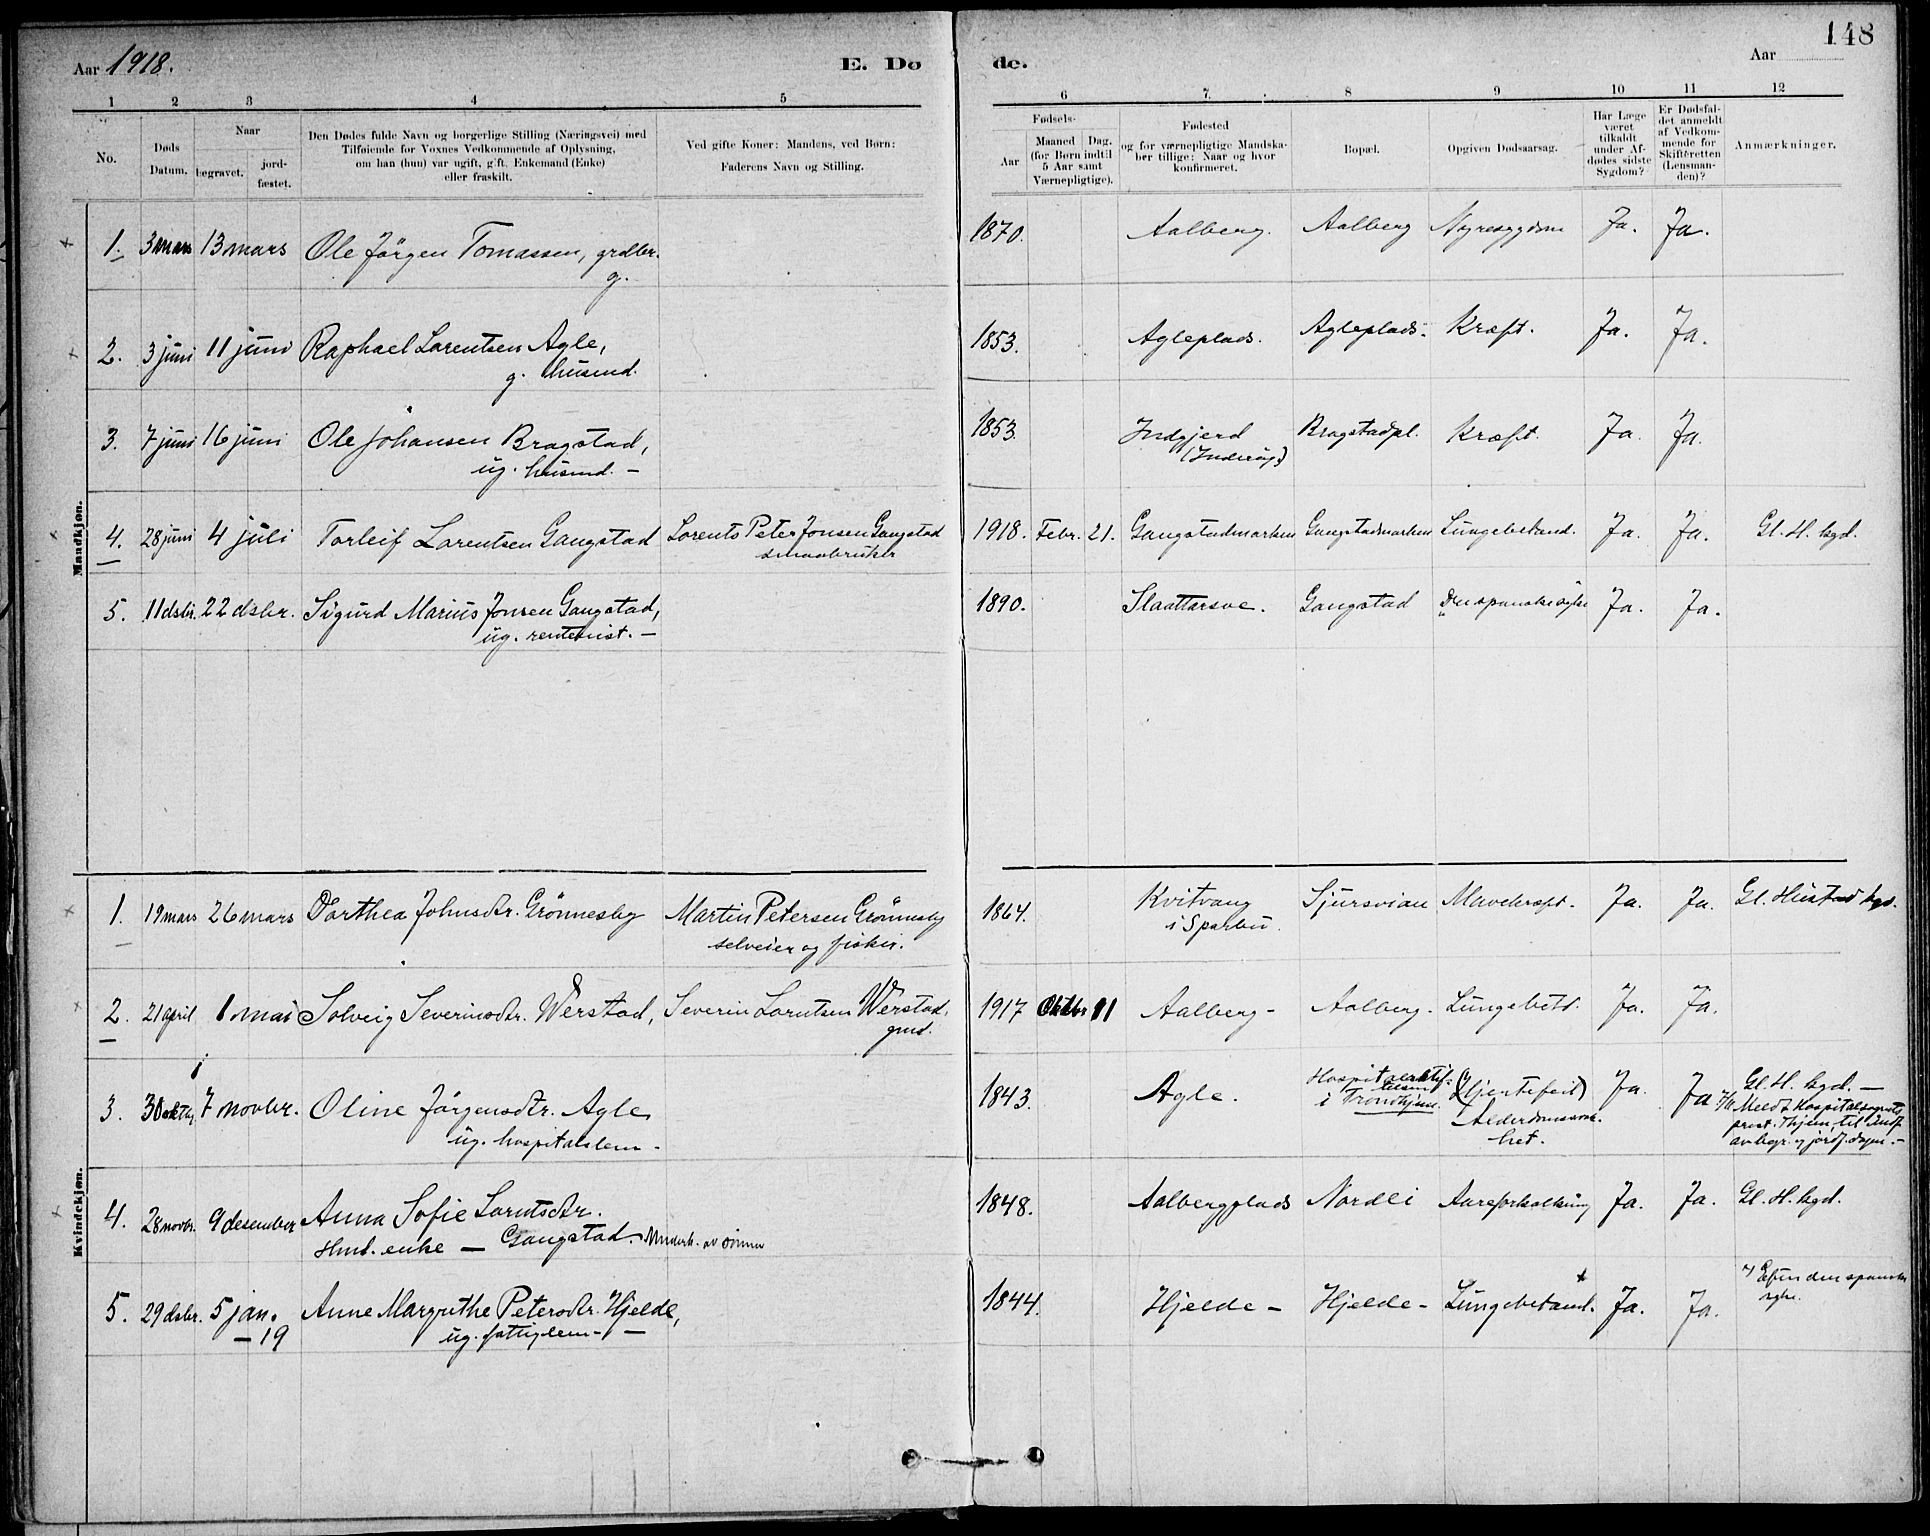 Aar 1918.
E. Dø
de.
Aar
148
1 2 3 4 5
6 7 8 9 10 11 12
No.
Døds Datum.
Naar
begravet.
jordfæstet.
Den Dødes fulde Navn og borgerlige Stilling (Næringsvei) med
Tilføiende for Voxnes Vedkommende af Oplysning,
om han (hun) var ugift, gift, Enkemand (Enke)
eller fraskilt.
Ved gifte Koner: Mandens, ved Børn:
Faderens Navn og Stilling.
Fødsels-
Aar
Maaned Dag.
(for Børn indtil
5 Aar samt
Værnepligtige).
Fødested
og for værnepligtige Mandskaber tillige: Naar og hvor
konfirmeret.
Bopæl.
Opgiven Dødsaarsag.
Har Læge
været
tilkaldt
under Afdødes sidste
Sygdom?
Er Dødsfaldet anmeldt
af Vedkommende for
Skifteretten
(Lensmanden)?
Anmærkninger.
Mandkjøn.
1. 3 mars 13 mars Ole Jørgen Tomassen, grdbr. 1870. Aalberg. Aalberg Nyresygdom Ja. Ja.
g.
2. 3 juni 11 juni Raphael Lorentsen Agle, 1853. Agleplads. Agleplads. Kræft. Ja. Ja.
g. husmd.
3. 7 juni 16 juni Ole Johansen Bragstad, 1853. Indgjerd Bragstadpl. Kræft. Ja. Ja.
ug. husmd. –
4. 28 juni 4 juli Torleif Lorentsen Gangstad Lorents Peter Jonsen Gangstad 1918. Febr. 21. Gangstadmarken Gangstadmarken Lungebetænd. Ja. Ja. Gl. H. kgd.
smaabruker
5. 11 dsbr. 22 dsbr. Sigurd Marius Jonsen Gangstad, 1890. Slaattarsve. Gangstad Den spanske syke Ja. Ja.
ug. rentenist. –
Kvindekjøn.
1. 19 mars 26 mars Dorthea Johnsdtr. Grönnesby Martin Petersen Grönnesby 1864. Kvitvang Sjursvian Mavekræft. Ja. Ja. Gl. Hustad kgd.
selveier og fisker. i Sparbu.
2. 21 april 1 mai Solveig Severinsdtr. Werstad, Severin Lorntsen Werstad, 1917 Oktbr 11 Aalberg – Aalberg. Lungebet. Ja. Ja.
gmd.
3. 30 oktbr 7 novbr. Oline Jörgensdtr. Agle 1843. Agle. i Trondhjem. (Hjertefeil) Ja. Ja Gl. H. kgd. –
ug. hospitalslem – Alderdomssvakhet. Meldt Hospitalsognets
prest. Thjem til Indf.
av begr. og jordf. dagen. –
4. 28 novbr. 9 desember Anna Sofie Lorntsdtr. 1848. Aalbergplads Nordli Aareforkalkning Ja. Ja. Gl. H. kgd.
Hmd. enke – Gangstad. Underh. av sönner
5. 29 dsbr. 5 jan. Anne Margrethe Petersdtr. Hjelde, 1844. Hjelde – Hjelde – Lungebetænd. Ja. Ja. Efter den spanske
– 19 ug. fattiglem – – syke.